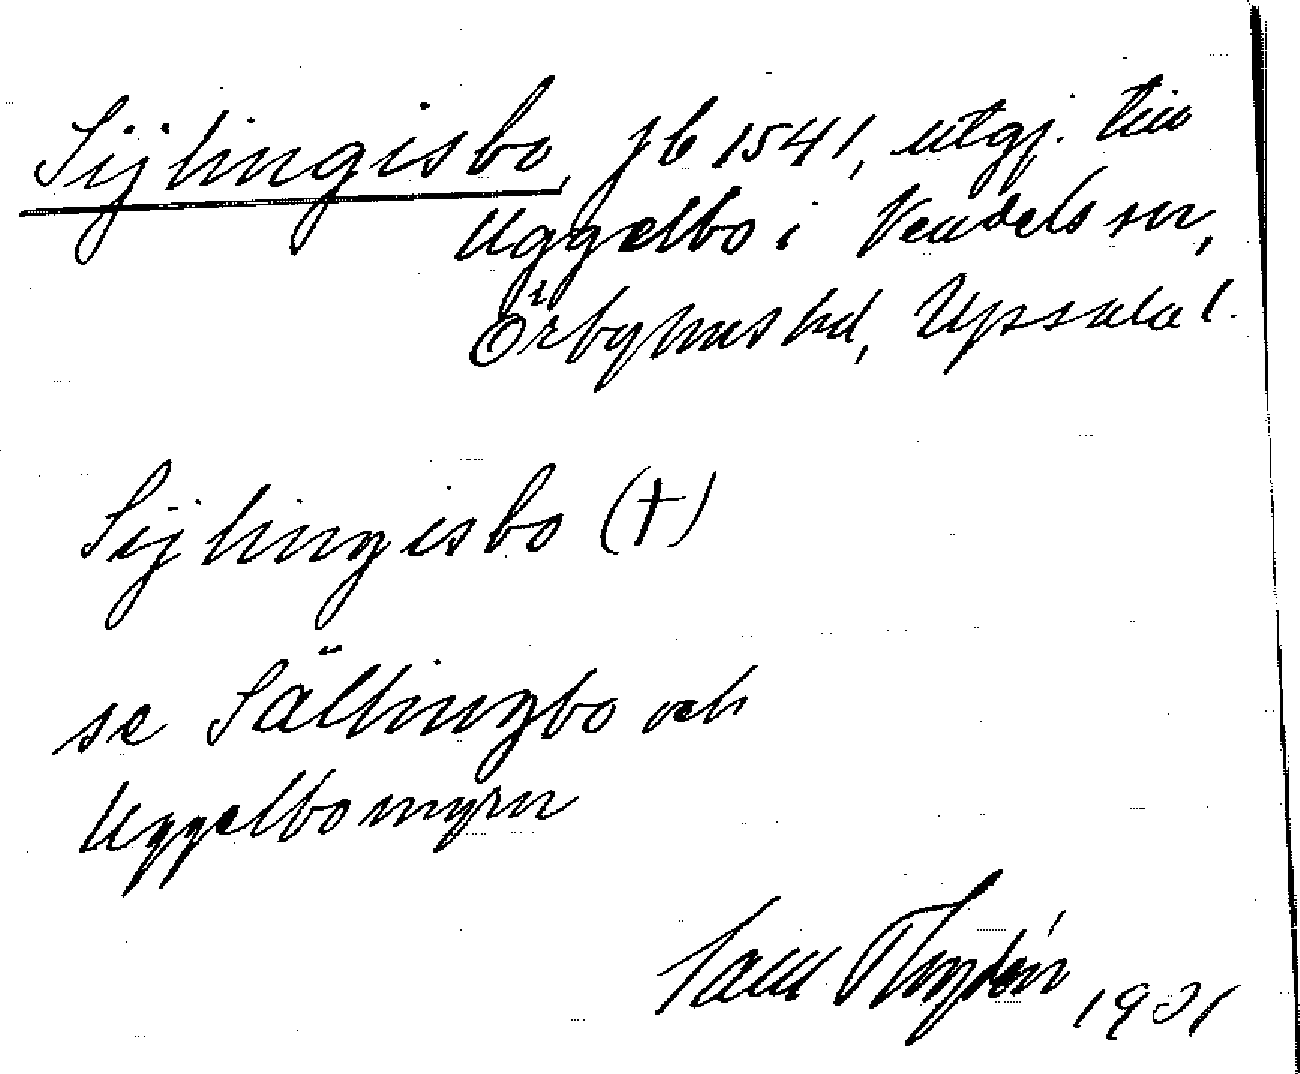 Sijhingisbo, jb 1541, utgj. till
Uggelbo i Vendels sn,
Örbyhus hd, Upsala l.
Sijhingisbo (†)
se Sälhingbo och
Uggelbomyrn
1901